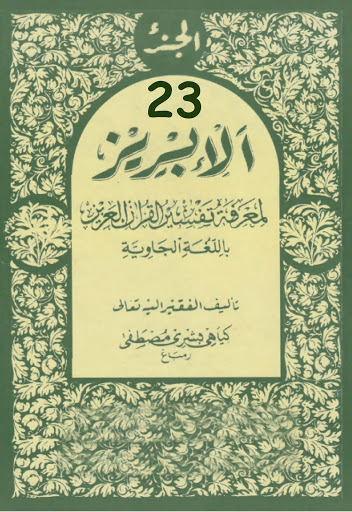 الجزء
23
الإبريز
لمعرفة تفسير القرآن العزيز
باللغة الجاوية
تأليف الفقير اليه تعالى
كياهي بشرى مصطفى
رمباغ